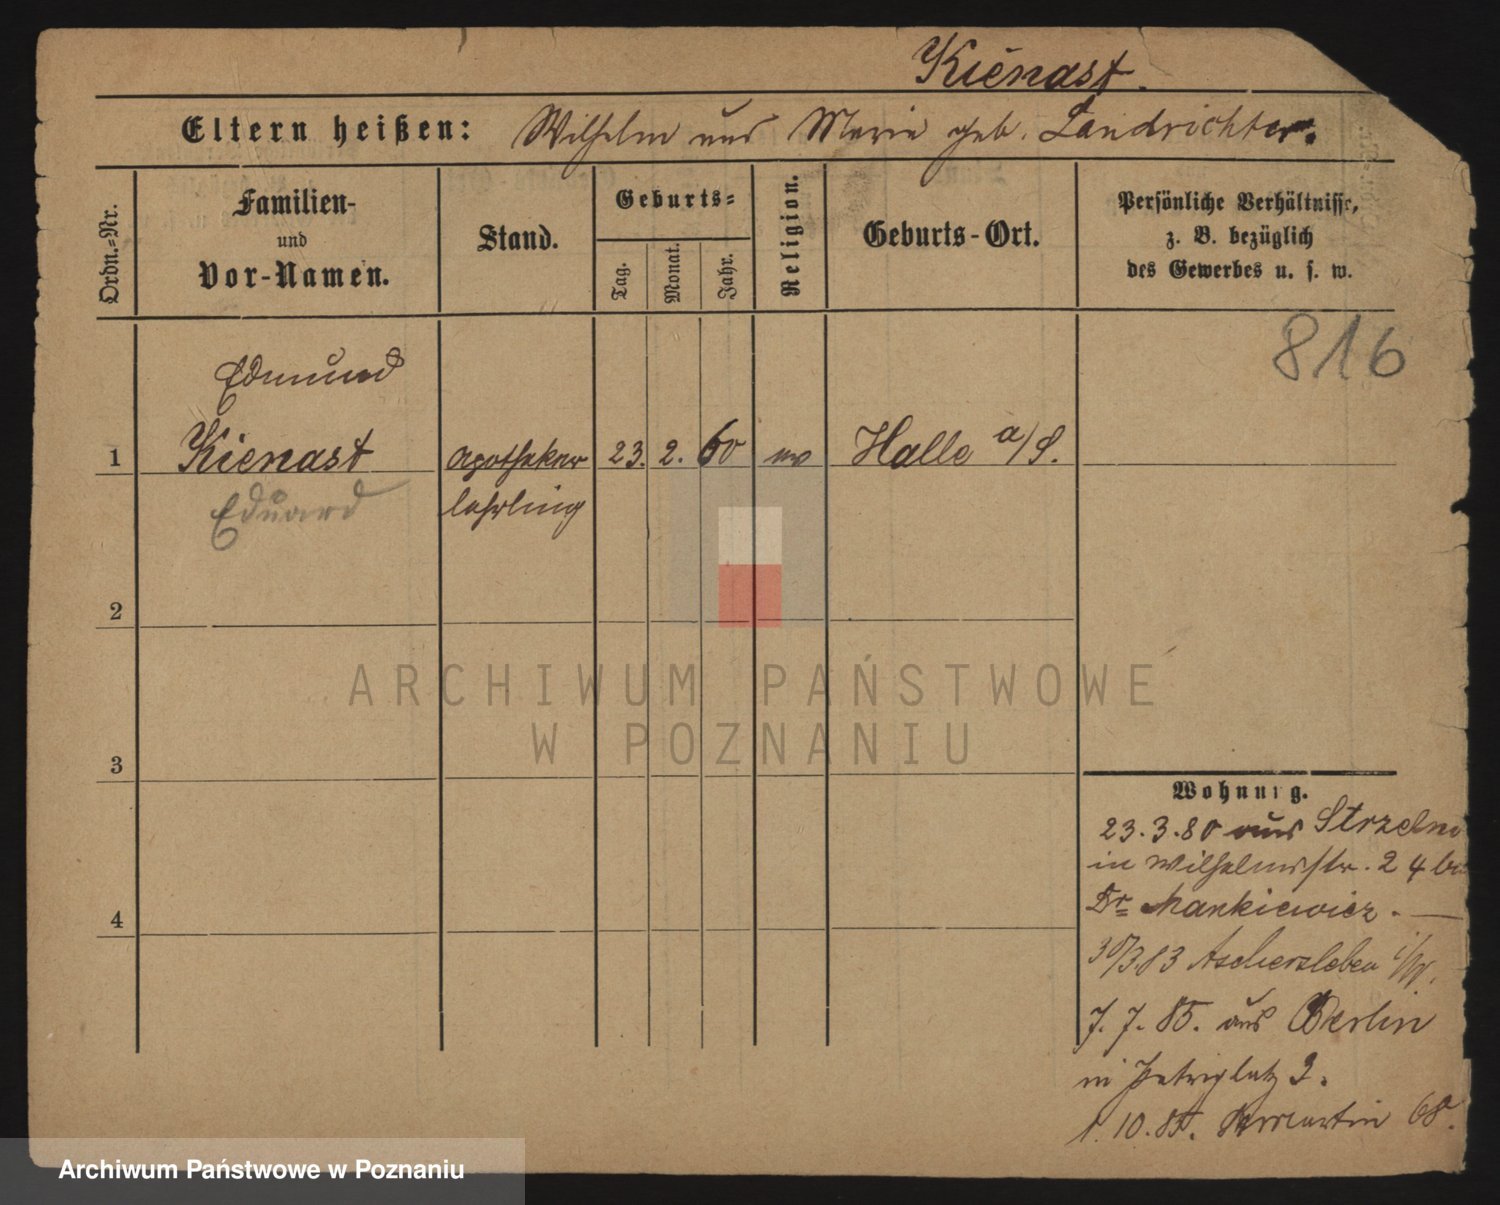 Kienast.
Eltern heißen: Wilhelm und Marie geb. Landrichter.
Ordn.=Nr.
Familien-
und
Vor-Namen.
Stand.
Geburts=
Tag.
Monat.
Jahr.
Religion.
Geburts-Ort.
Persönliche Verhältnisse,
z. B. bezüglich
des Gewerbes u. s. w.
816
Edmund
1 Kienast Apotheker 23. 2. 60 ev Halle a/S.
Eduard lehrling
2
3
4
ARCHIWUM PAŃSTWOWE
W POZNANIU
Wohnung.
23.3.80 aus Strzelno
in Wilhelmsstr. 24 bei
Dr Mankiewicz.
30/3.83 Aschersleben
7. 7. 85. aus Berlin
in Petriplatz 2.
1. 10. 85. Martin 68.
Archiwum Państwowe w Poznaniu